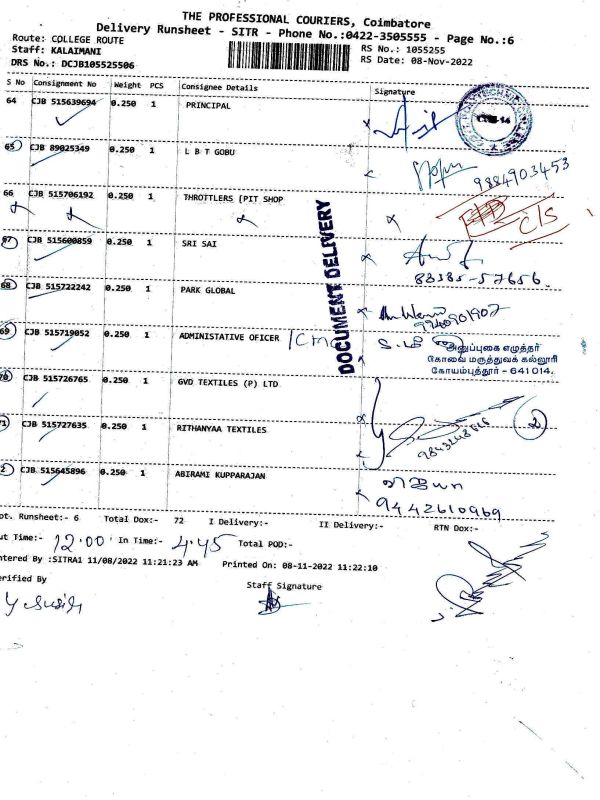 THE PROFESSIONAL COURIERS, Coimbatore
Delivery Runsheet - SITR - Phone No.:0422-3505555 - Page No.:6
Route: COLLEGE ROUTE
RS No.: 1055255
Staff: KALAIMANI
RS Date: 08-Nov-2022
DRS No.: DCJB105525506
S No Consignment No Weight PCS Consignee Details Signature
64 CJB 515639694 0.250 1 PRINCIPAL
65 CJB 89025349 0.250 1 L B T GOBU
9884903453
66 CJB 515706192 0.250 1 THROTTLERS [PIT SHOP
C/S
67 CJB 515600859 0.250 1 SRI SAI
88385-57656.
68 CJB 515722242 0.250 1 PARK GLOBAL
9240901902
69 CJB 515719052 0.250 1 ADMINISTATIVE OFICER
அனுப்புகை எழுத்தர்
கோவை மருத்துவக் கல்லூரி
கோயம்புத்தூர் - 641 014.
DOCUMENT DELIVERY
70 CJB 515726765 0.250 1 GVD TEXTILES (P) LTD
2
71 CJB 515727635 0.250 1 RITHANYAA TEXTILES
72 CJB 515645896 0.250 1 ABIRAMI KUPPARAJAN
விஜயா
9442610969
ot. Runsheet:- 6 Total Dox:- 72 I Delivery:- II Delivery:- RTN Dox:-
ut Time:- 12.00 In Time:- 4.45 Total POD:-
ntered By :SITRA1 11/08/2022 11:21:23 AM Printed On: 08-11-2022 11:22:10
erified By
Staff Signature